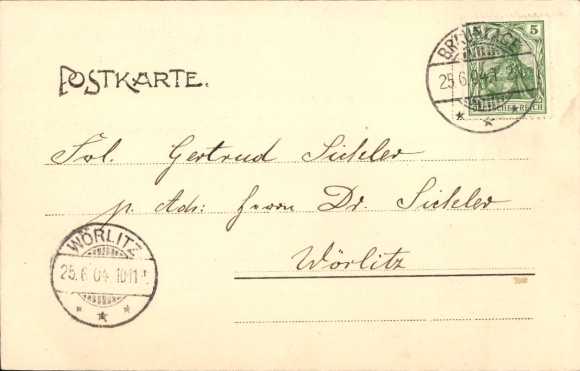 POSTKARTE.
BRAUNLAGE
25.6.04.
5
DEUTSCHES REICH
Frl. Gertrud Sickler
p. Adr: Herrn Dr. Sickler
Wörlitz
WÖRLITZ
25.6.04. 10-11